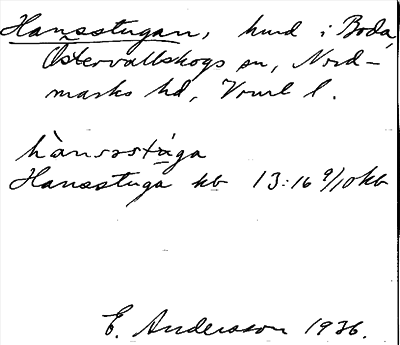 Hansstugan, hmd i Boda,
Östervallskogs sn, Nord-
marks hd, Vrml l.
hànsstɐ̀ga
Hansstuga kb 13:16 9/10 kb
E. Andersson 1936.